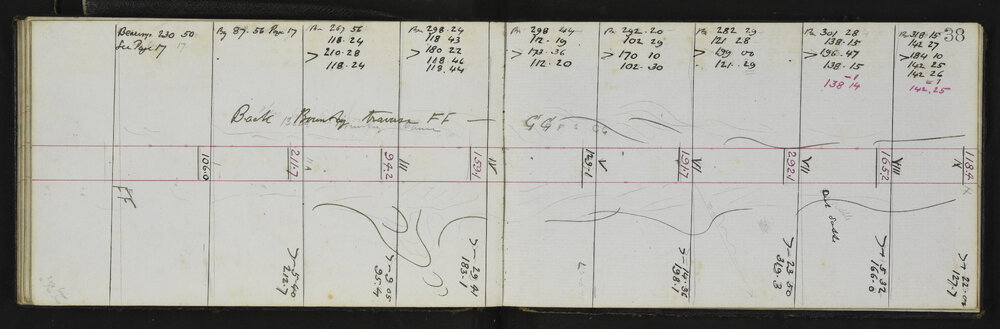 38
Bearing 230 50
See Page 17 17
Bg 87. 56 Page 17
Bn 267 56
118. 24
> 210. 28
118. 24
Bn 298. 24
118 43
> 180 22
118 46
118. 44
Bn 298 44
112. 19
> 173. 36
112. 20
Bn 292. 20
102 29
> 170 10
102. 30
Bn 282 29
121 28
> 199 00
121. 29
Bn 301 28
138. 15
> 196. 47
138. 15
-1
138 14
Bn 318. 15
142 27
> 184 10
142 25
142 26
-1
142. 25
Back Boundy traverse FF —
GG
1060
2147
942
III
1591
IV
1291
V
1917
VI
2921
VII
1652
VIII
1184
IX
FF
>- 5. 40
212. 7
>- 9 05
35. 4
>- 29 41
183. 1
>- 14. 36
198. 1
>- 23. 50
319. 3
>+ 5. 32
166. 0
>+ 22. 02
127. 7